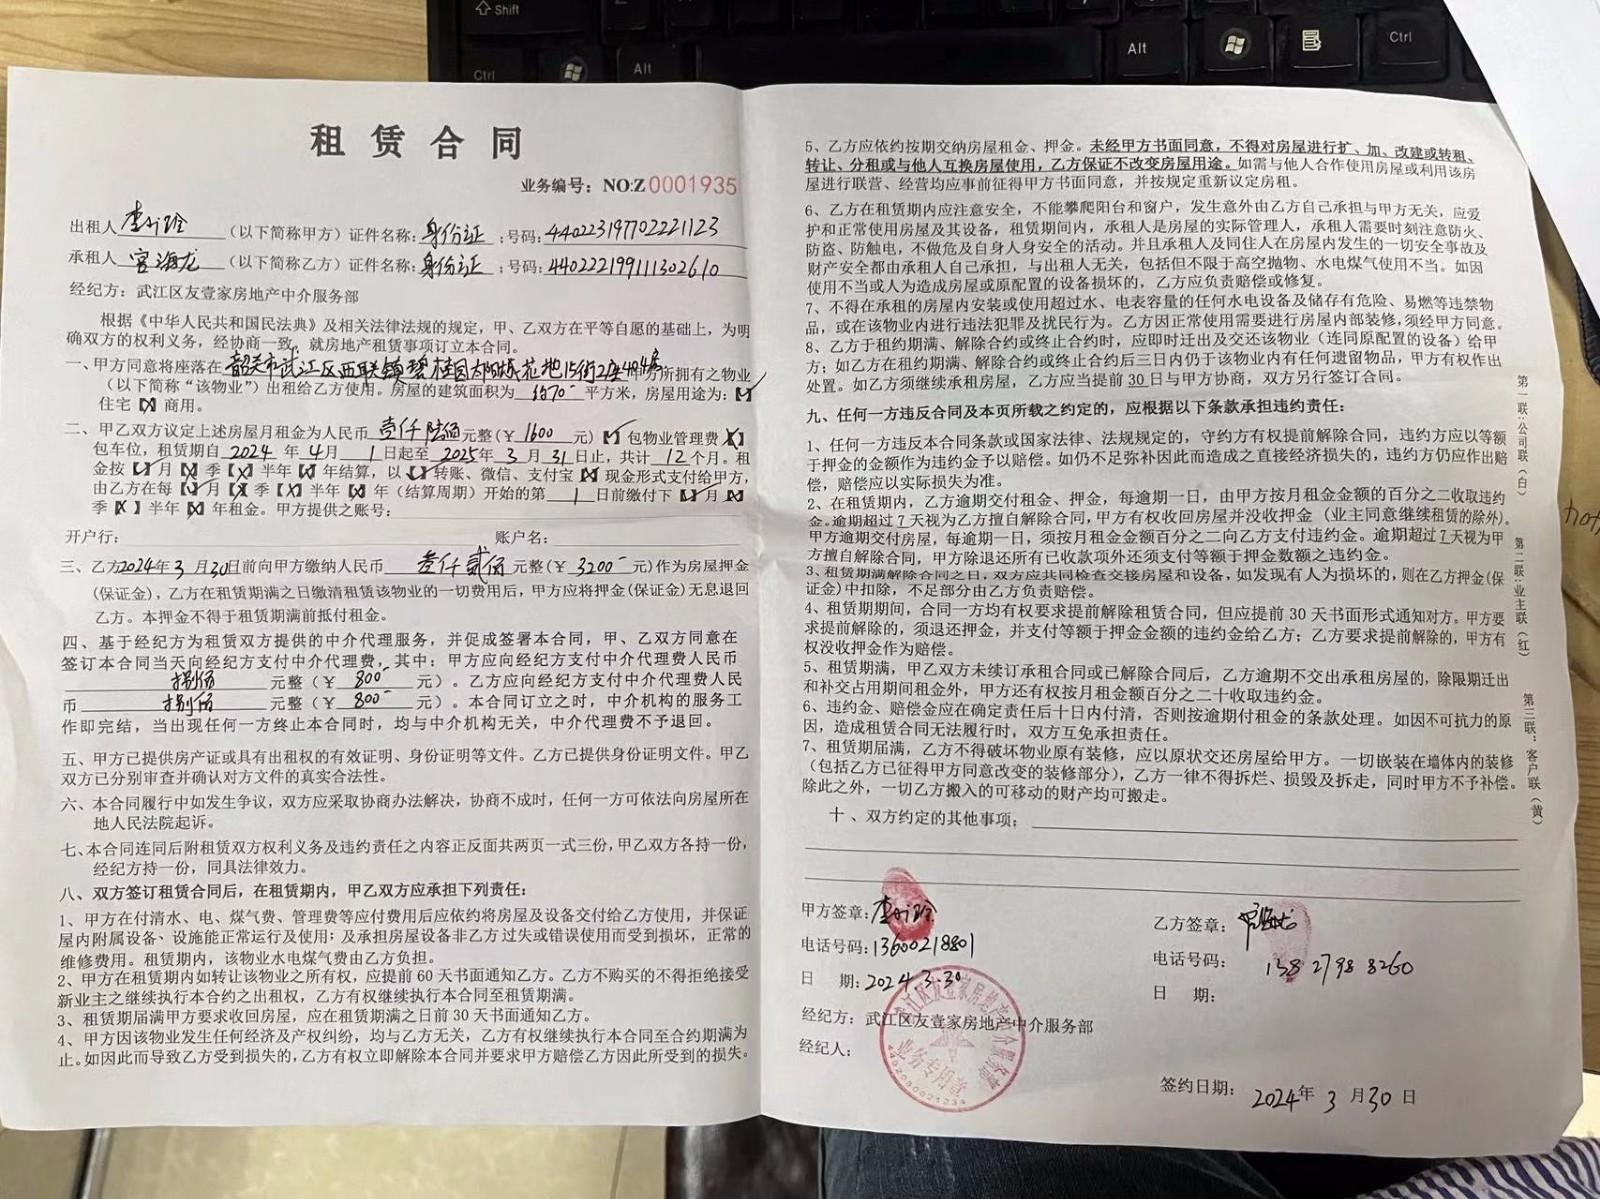 租赁合同
业务编号：NO:Z0001935
出租人 （以下简称甲方）证件名称：身份证；号码：440223197702221123
承租人 宫海龙 （以下简称乙方）证件名称：身份证；号码：440222199111302610
经纪方：武江区友壹家房地产中介服务部
根据《中华人民共和国民法典》及相关法律法规的规定，甲、乙双方在平等自愿的基础上，为明
确双方的权利义务，经协商一致，就房地产租赁事项订立本合同。
一、甲方同意将座落在韶关市武江区西联镇碧桂园太阳城花地15街2座404房甲方所拥有之物业
（以下简称“该物业”）出租给乙方使用。房屋的建筑面积为约70平方米，房屋用途为：【✓】
住宅【X】商用。
二、甲乙双方议定上述房屋月租金为人民币 壹仟陆佰 元整（￥1600元）【✓】包物业管理费【X】
包车位，租赁期自2024年4月1日起至2025年3月31日止，共计12个月。租
金按【✓】月【X】季【X】半年【X】年结算，以【✓】转账、微信、支付宝【X】现金形式支付给甲方，
由乙方在每【✓】月【X】季【X】半年【X】年（结算周期）开始的第1日前缴付下【✓】月【X】
季【X】半年【X】年租金。甲方提供之账号：
开户行： 账户名：
三、乙方2024年3月30日前向甲方缴纳人民币 叁仟贰佰 元整（￥3200元）作为房屋押金
(保证金)，乙方在租赁期满之日缴清租赁该物业的一切费用后，甲方应将押金(保证金)无息退回
乙方。本押金不得于租赁期满前抵付租金。
四、基于经纪方为租赁双方提供的中介代理服务，并促成签署本合同，甲、乙双方同意在
签订本合同当天向经纪方支付中介代理费，其中：甲方应向经纪方支付中介代理费人民币
捌佰 元整（￥800元）。乙方应向经纪方支付中介代理费人民
币 捌佰 元整（￥800元）。本合同订立之时，中介机构的服务工
作即完结，当出现任何一方终止本合同时，均与中介机构无关，中介代理费不予退回。
五、甲方已提供房产证或具有出租权的有效证明、身份证明等文件。乙方已提供身份证明文件。甲乙
双方已分别审查并确认对方文件的真实合法性。
六、本合同履行中如发生争议，双方应采取协商办法解决，协商不成时，任何一方可依法向房屋所在
地人民法院起诉。
七、本合同连同后附租赁双方权利义务及违约责任之内容正反面共两页一式三份，甲乙双方各持一份，
经纪方持一份，同具法律效力。
八、双方签订租赁合同后，在租赁期内，甲乙双方应承担下列责任：
1、甲方在付清水、电、煤气费、管理费等应付费用后应依约将房屋及设备交付给乙方使用，并保证
屋内附属设备、设施能正常运行及使用；及承担房屋设备非乙方过失或错误使用而受到损坏，正常的
维修费用。租赁期内，该物业水电煤气费由乙方负担。
2、甲方在租赁期内如转让该物业之所有权，应提前60天书面通知乙方。乙方不购买的不得拒绝接受
新业主之继续执行本合约之出租权，乙方有权继续执行本合同至租赁期满。
3、租赁期届满甲方要求收回房屋，应在租赁期满之日前30天书面通知乙方。
4、甲方因该物业发生任何经济及产权纠纷，均与乙方无关，乙方有权继续执行本合同至合约期满为
止。如因此而导致乙方受到损失的，乙方有权立即解除本合同并要求甲方赔偿乙方因此所受到的损失。
5、乙方应依约按期交纳房屋租金、押金。未经甲方书面同意，不得对房屋进行扩、加、改建或转租、
转让、分租或与他人互换房屋使用，乙方保证不改变房屋用途。如需与他人合作使用房屋或利用该房
屋进行联营、经营均应事前征得甲方书面同意，并按规定重新议定房租。
6、乙方在租赁期内应注意安全，不能攀爬阳台和窗户，发生意外由乙方自己承担与甲方无关，应爱
护和正常使用房屋及其设备，租赁期间内，承租人是房屋的实际管理人，承租人需要时刻注意防火、
防盗、防触电，不做危及自身人身安全的活动。并且承租人及同住人在房屋内发生的一切安全事故及
财产安全都由承租人自己承担，与出租人无关，包括但不限于高空抛物、水电煤气使用不当。如因
使用不当或人为造成房屋或原配置的设备损坏的，乙方应负责赔偿或修复。
7、不得在承租的房屋内安装或使用超过水、电表容量的任何水电设备及储存有危险、易燃等违禁物
品，或在该物业内进行违法犯罪及扰民行为。乙方因正常使用需要进行房屋内部装修，须经甲方同意。
8、乙方于租约期满、解除合约或终止合约时，应即时迁出及交还该物业（连同原配置的设备）给甲
方；如乙方在租约期满、解除合约或终止合约后三日内仍于该物业内有任何遗留物品，甲方有权作出
处置。如乙方须继续承租房屋，乙方应当提前30日与甲方协商，双方另行签订合同。
九、任何一方违反合同及本页所载之约定的，应根据以下条款承担违约责任：
1、任何一方违反本合同条款或国家法律、法规规定的，守约方有权提前解除合同，违约方应以等额
于押金的金额作为违约金予以赔偿。如仍不足弥补因此而造成之直接经济损失的，违约方仍应作出赔
偿，赔偿应以实际损失为准。
2、在租赁期内，乙方逾期交付租金、押金，每逾期一日，由甲方按月租金金额的百分之二收取违约
金。逾期超过7天视为乙方擅自解除合同，甲方有权收回房屋并没收押金（业主同意继续租赁的除外）。
甲方逾期交付房屋，每逾期一日，须按月租金金额百分之二向乙方支付违约金。逾期超过7天视为甲
方擅自解除合同，甲方除退还所有已收款项外还须支付等额于押金数额之违约金。
3、租赁期满解除合同之日，双方应共同检查交接房屋和设备，如发现有人为损坏的，则在乙方押金(保
证金)中扣除，不足部分由乙方负责赔偿。
4、租赁期期间，合同一方均有权要求提前解除租赁合同，但应提前30天书面形式通知对方。甲方要
求提前解除的，须退还押金，并支付等额于押金金额的违约金给乙方；乙方要求提前解除的，甲方有
权没收押金作为赔偿。
5、租赁期满，甲乙双方未续订承租合同或已解除合同后，乙方逾期不交出承租房屋的，除限期迁出
和补交占用期间租金外，甲方还有权按月租金额百分之二十收取违约金。
6、违约金、赔偿金应在确定责任后十日内付清，否则按逾期付租金的条款处理。如因不可抗力的原
因，造成租赁合同无法履行时，双方互免承担责任。
7、租赁期届满，乙方不得破坏物业原有装修，应以原状交还房屋给甲方。一切嵌装在墙体内的装修
（包括乙方已征得甲方同意改变的装修部分），乙方一律不得拆烂、损毁及拆走，同时甲方不予补偿。
除此之外，一切乙方搬入的可移动的财产均可搬走。
十、双方约定的其他事项；
甲方签章：
电话号码：13600218801
日 期：2024.3.30
经纪方：武江区友壹家房地产中介服务部
经纪人：
乙方签章：宫海龙
电话号码：13827983260
日 期：
签约日期：2024年3月30日
武江区友壹家房地产中介服务部
业务专用章
第一联：公司联（白）
第二联：业主联（红）
第三联：客户联（黄）
Shift
Ctrl
Alt
Alt
Ctrl